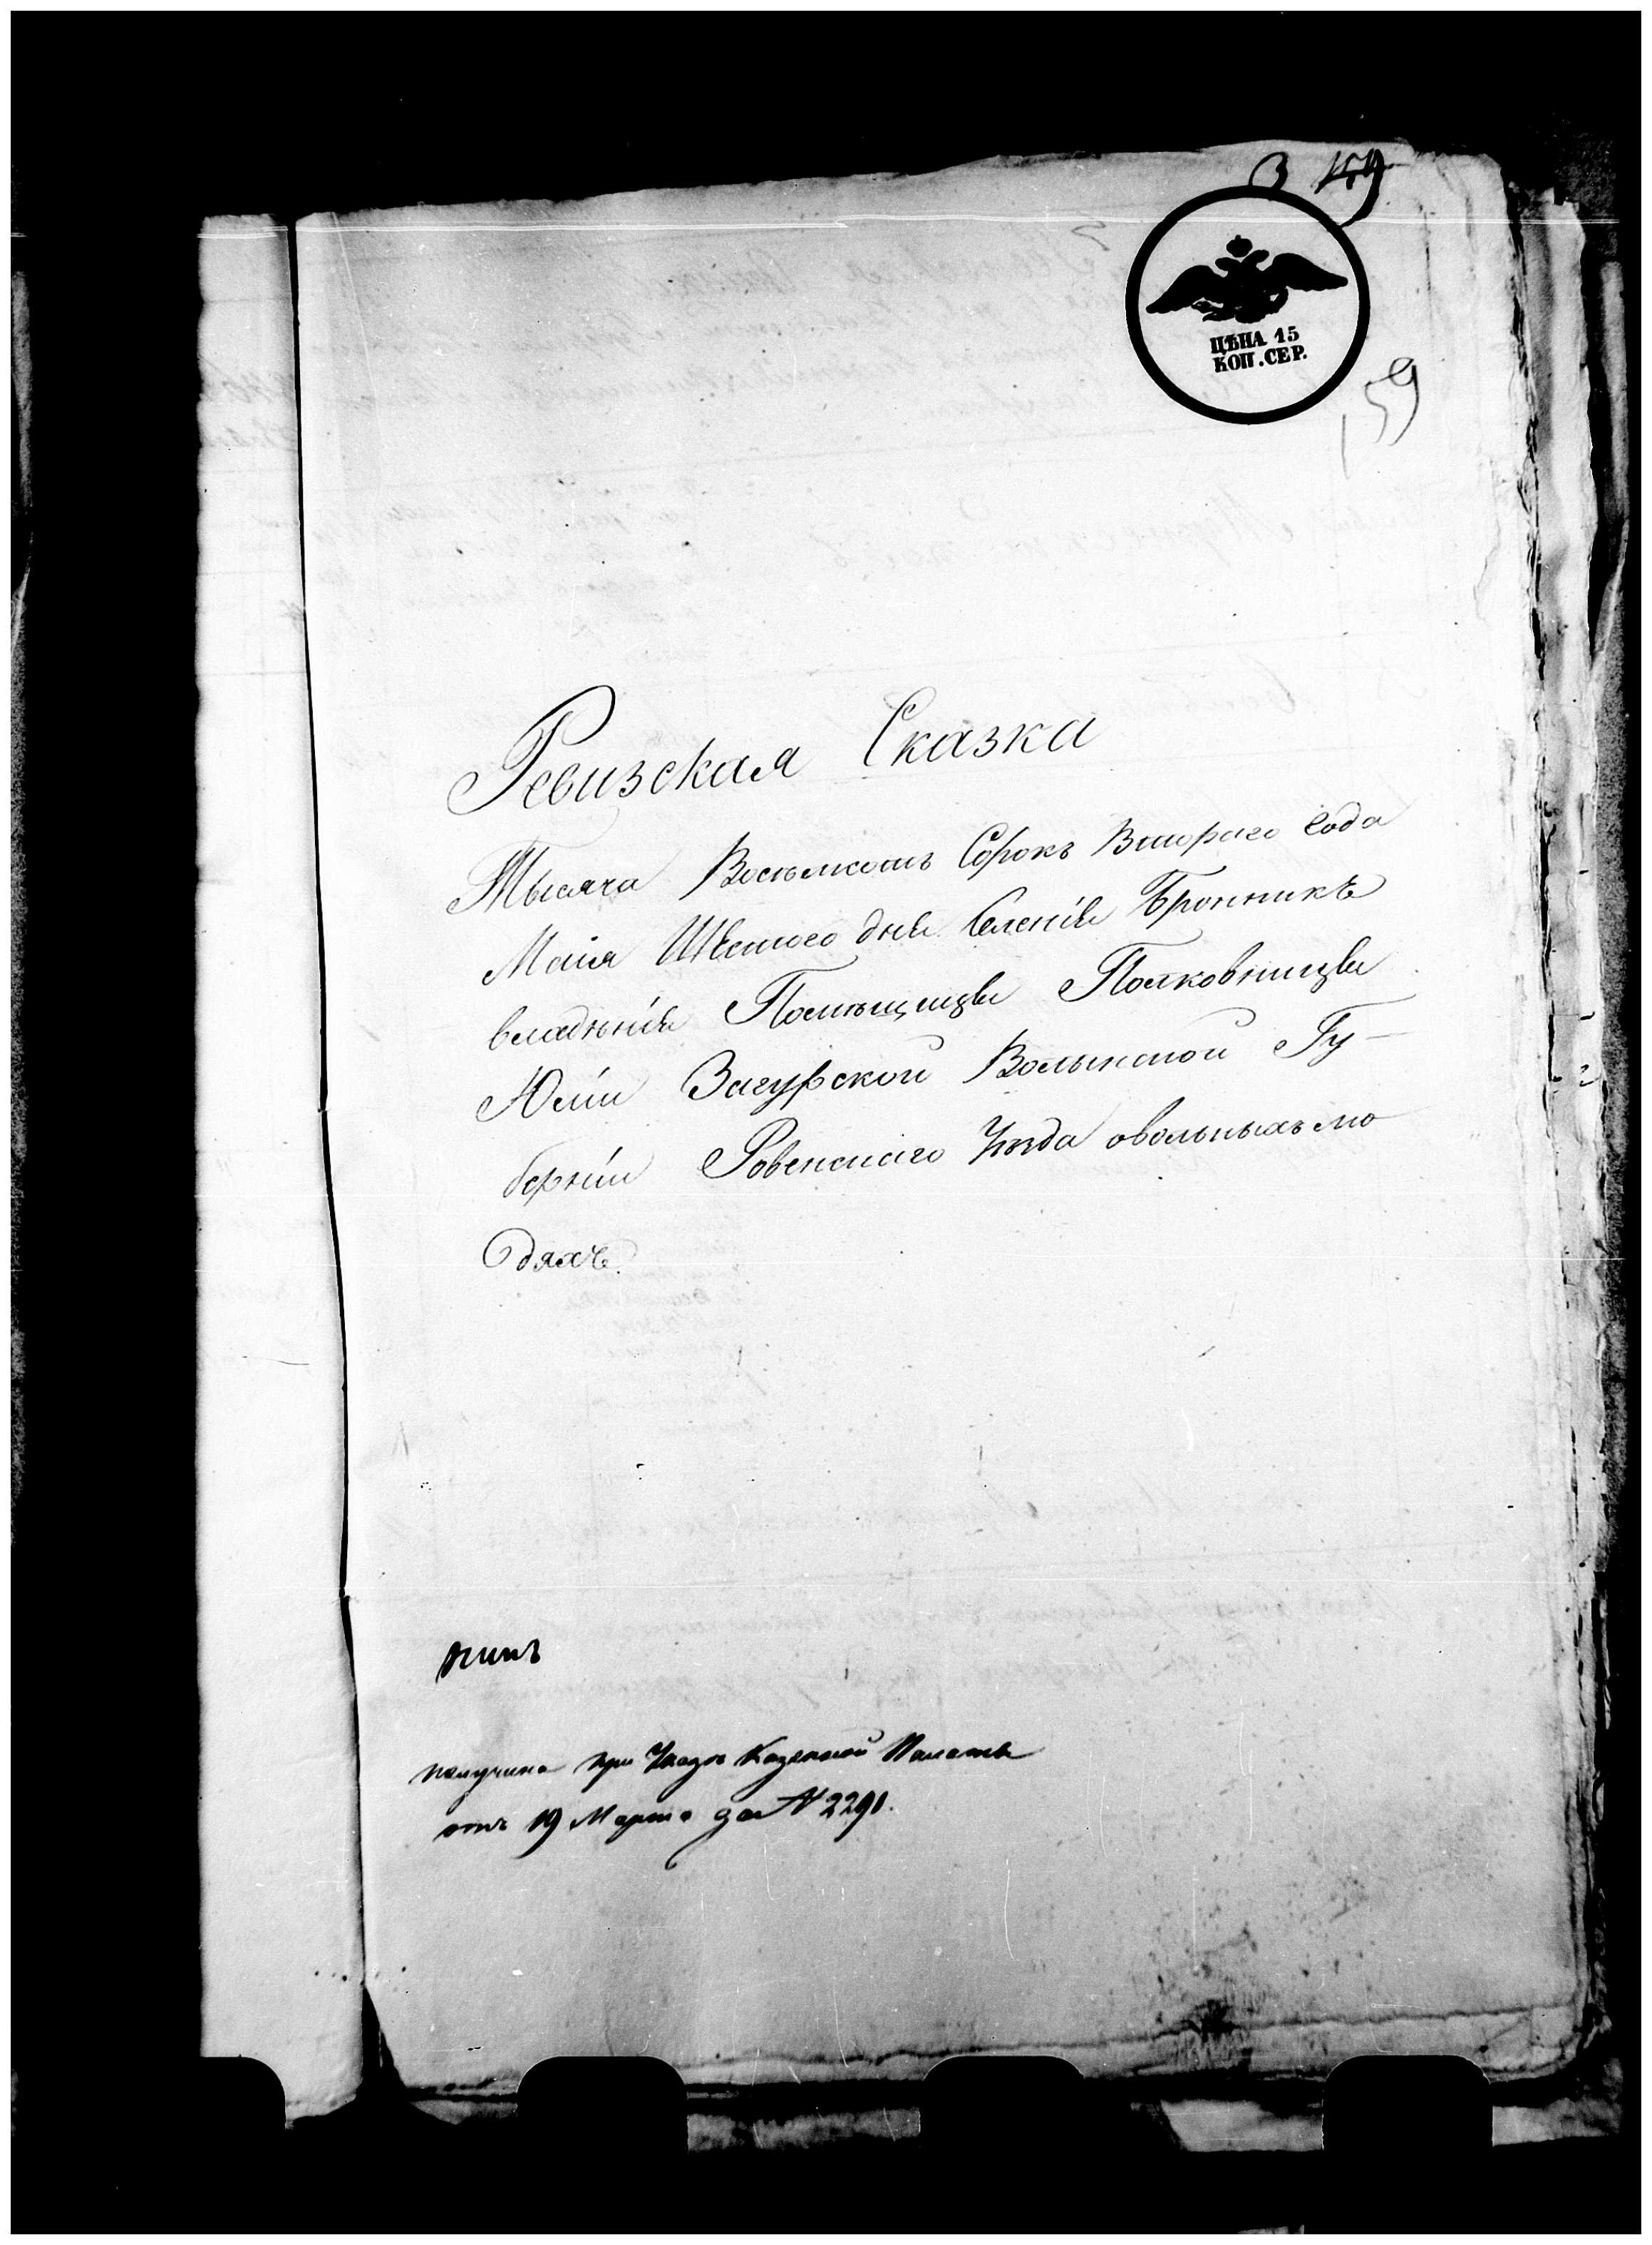 3
ЦѢНА 15
КОП. СЕР.
159
Ревизская Сказка
Тысяча Восемсотъ Сорокъ Втораго Года
Маія Шѣстого дня Селенія Бронникъ
владѣнія Помѣщицы Полковницы
Юліи Загурской Волынской Гу-
берніи Ровенскаго Уѣзда овольныхъ лю
дяхъ.
получина при Указѣ Казенной Палаты
отъ 19 Марта за N 2291.